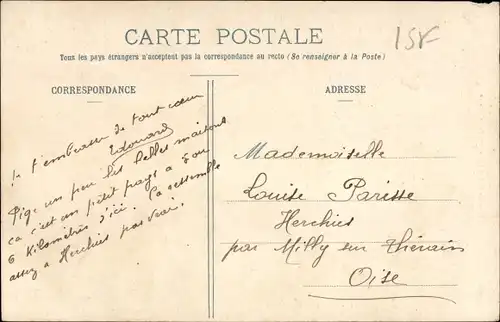 CARTE POSTALE
15F
Tous les pays étrangers n'acceptent pas la correspondance au recto (Se renseigner à la Poste)
CORRESPONDANCE
Je t'embrasse de tout cœur
Edouard
Pige un peu les belles maisons
ça c'est un petit pays a 5 ou
6 kilomètres d'ici. Ca ressemble
assez a Herchies pas vrai.
ADRESSE
Mademoiselle
Louise Parisse
Herchies
par Milly sur Thérain
Oise